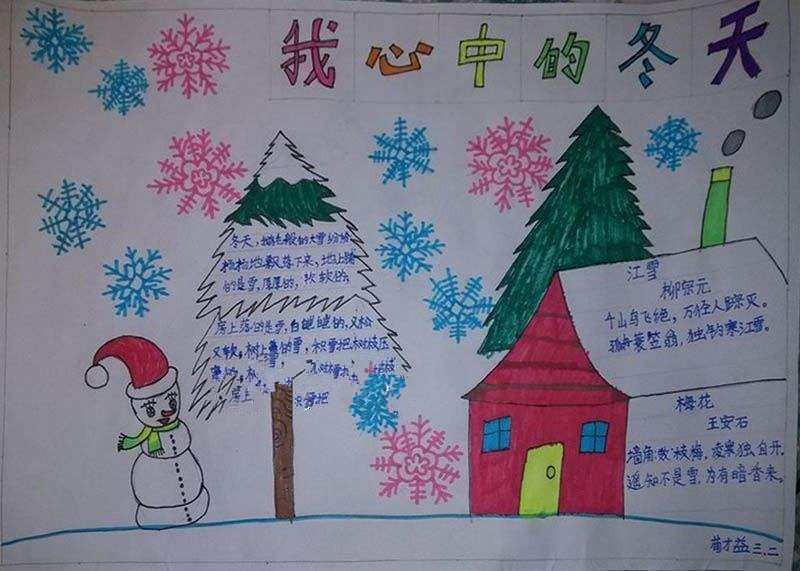 我心中的冬天
冬天，鹅毛般的大雪纷纷
扬扬地飘落下来，地上踏
的是雪，厚厚的，软软的，
房上落的是雪，白皑皑的，又松
又软，树上的雪，积雪把树枝压
房上
积雪把
江雪
柳宗元
千山鸟飞绝，万径人踪灭。
孤舟蓑笠翁，独钓寒江雪。
梅花
王安石
墙角数枝梅，凌寒独自开。
遥知不是雪，为有暗香来。
三.二